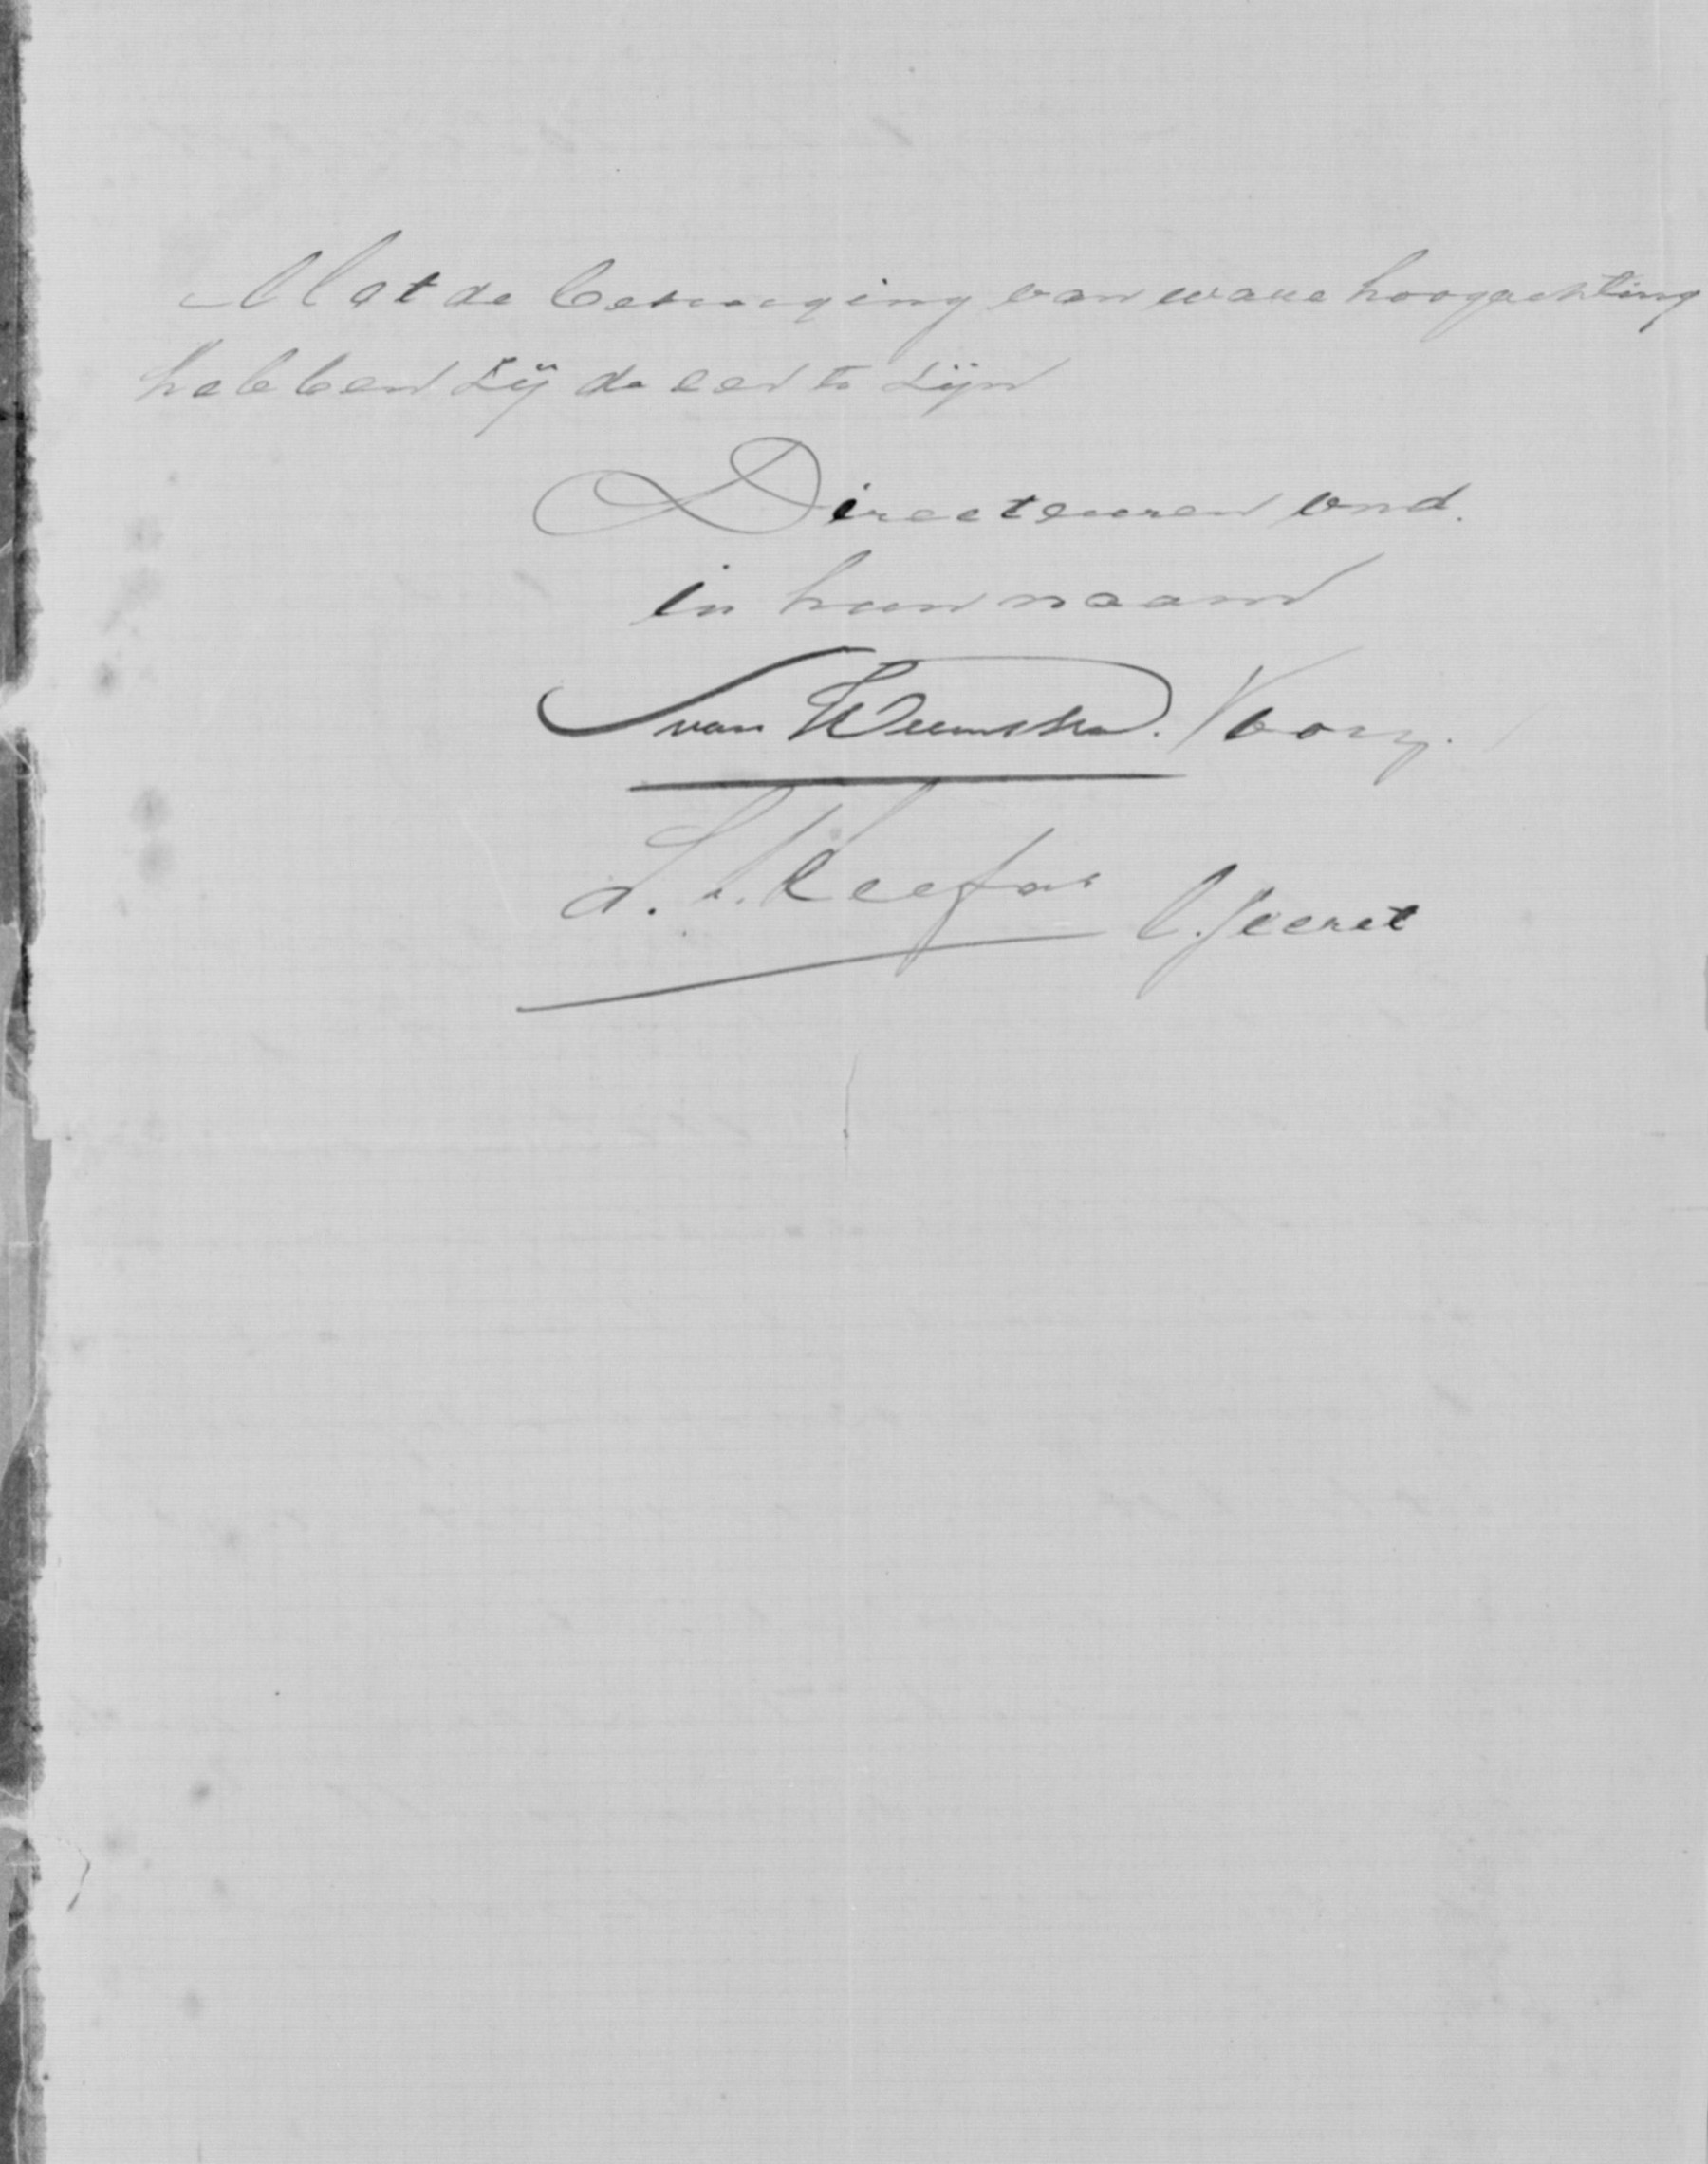 Met de betuiging van ware hoogachting
hebben zij de eer te zijn
Directeuren vnd.
in hun naam
van Voorz.
L. v. Secret